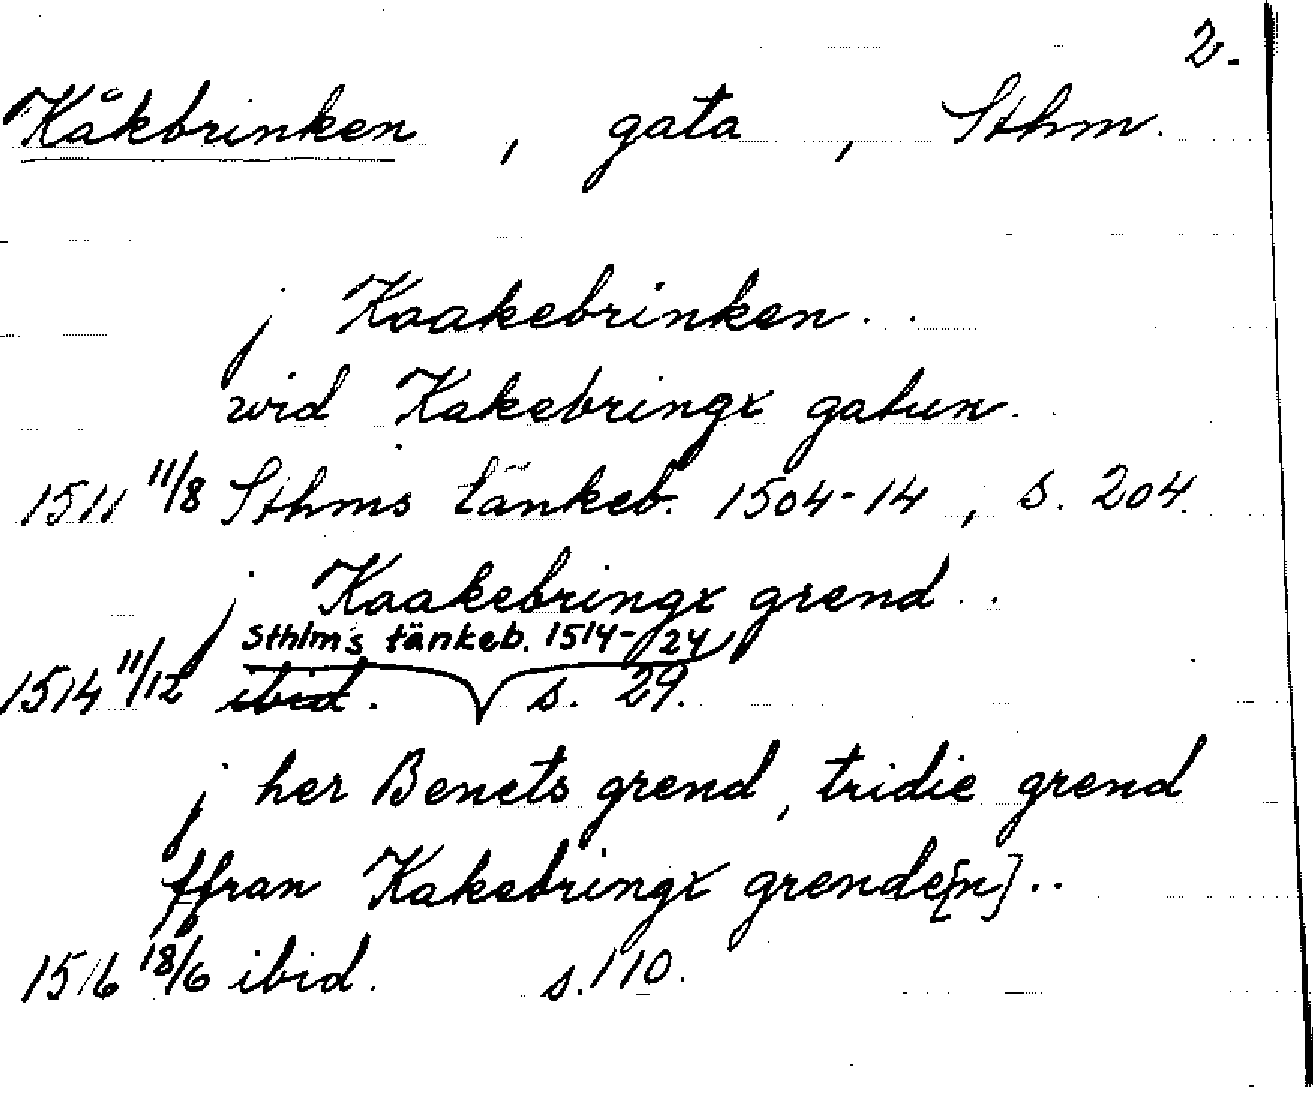 2.
Kåkbrinken, gata, Sthm.
j Kaakebrinken..
wid Kakebringx gatun.
1511 11/8 Sthms tänkeb. 1504-14, s. 204.
j Kaakebringx grend..
Sthlms tänkeb. 1514-24,
1514 11/12 ibid. s. 29.
j her Bencts grend, tridie grend
ffran Kakebringx grende[n]..
1516 18/6 ibid. s. 110.